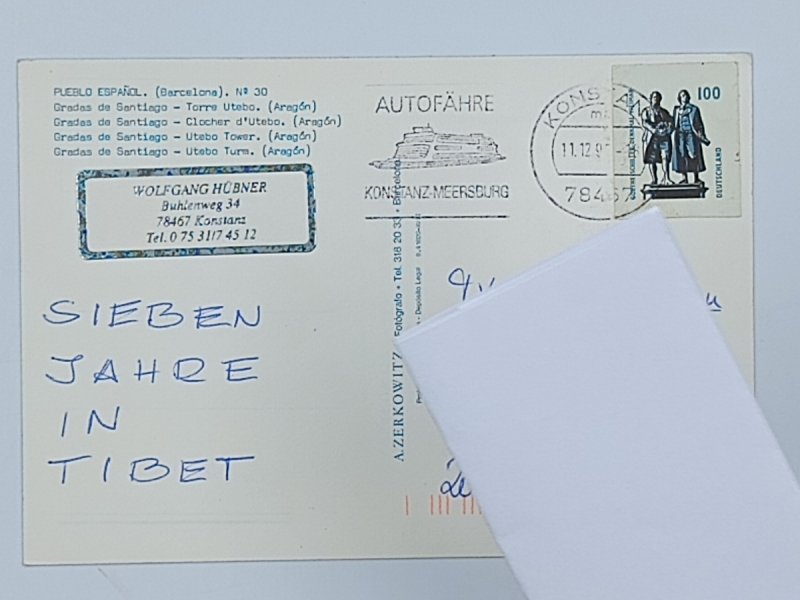 PUEBLO ESPAÑOL. (Barcelona). Nº 30
Gradas de Santiago - Torre Utebo. (Aragón)
Gradas de Santiago - Clocher d'Utebo. (Aragón)
Gradas de Santiago - Utebo Tower. (Aragón)
Gradas de Santiago - Utebo Turm. (Aragón)
WOLFGANG HÜBNER
Buhlenweg 34
78467 Konstanz
Tel. 0 75 31/7 45 12
SIEBEN
JAHRE
IN
TIBET
AUTOFÄHRE
KONSTANZ-MEERSBURG
KONSTAN
11.12.9
78467
100
DEUTSCHLAND
A. ZERKOWITZ Fotógrafo • Tel. 318 20 33 • Barcelona
Depósito Legal